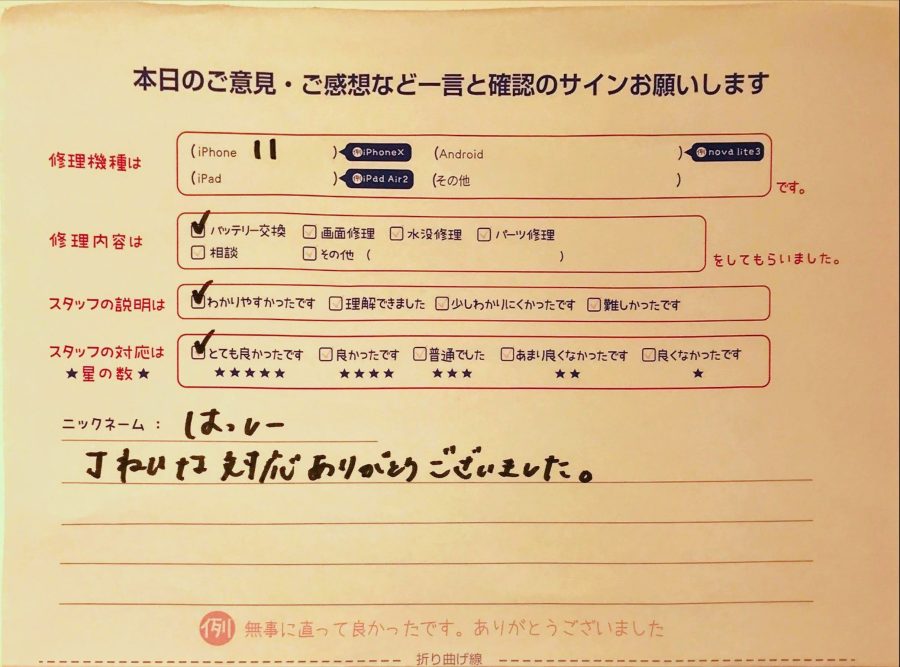 本日のご意見・ご感想など一言と確認のサインお願いします
修理機種は (iPhone 11 ) 例iPhoneX (Android ) 例nova lite3
(iPad ) 例iPad Air2 (その他 ) です。
修理内容は バッテリー交換 画面修理 水没修理 パーツ修理
相談 その他 ( ) をしてもらいました。
スタッフの説明は わかりやすかったです 理解できました 少しわかりにくかったです 難しかったです
スタッフの対応は とても良かったです 良かったです 普通でした あまり良くなかったです 良くなかったです
★星の数★ ★★★★★ ★★★★ ★★★ ★★ ★
ニックネーム: はっしー
丁ねいな対応ありがとうございました。
例 無事に直って良かったです。ありがとうございました
折り曲げ線